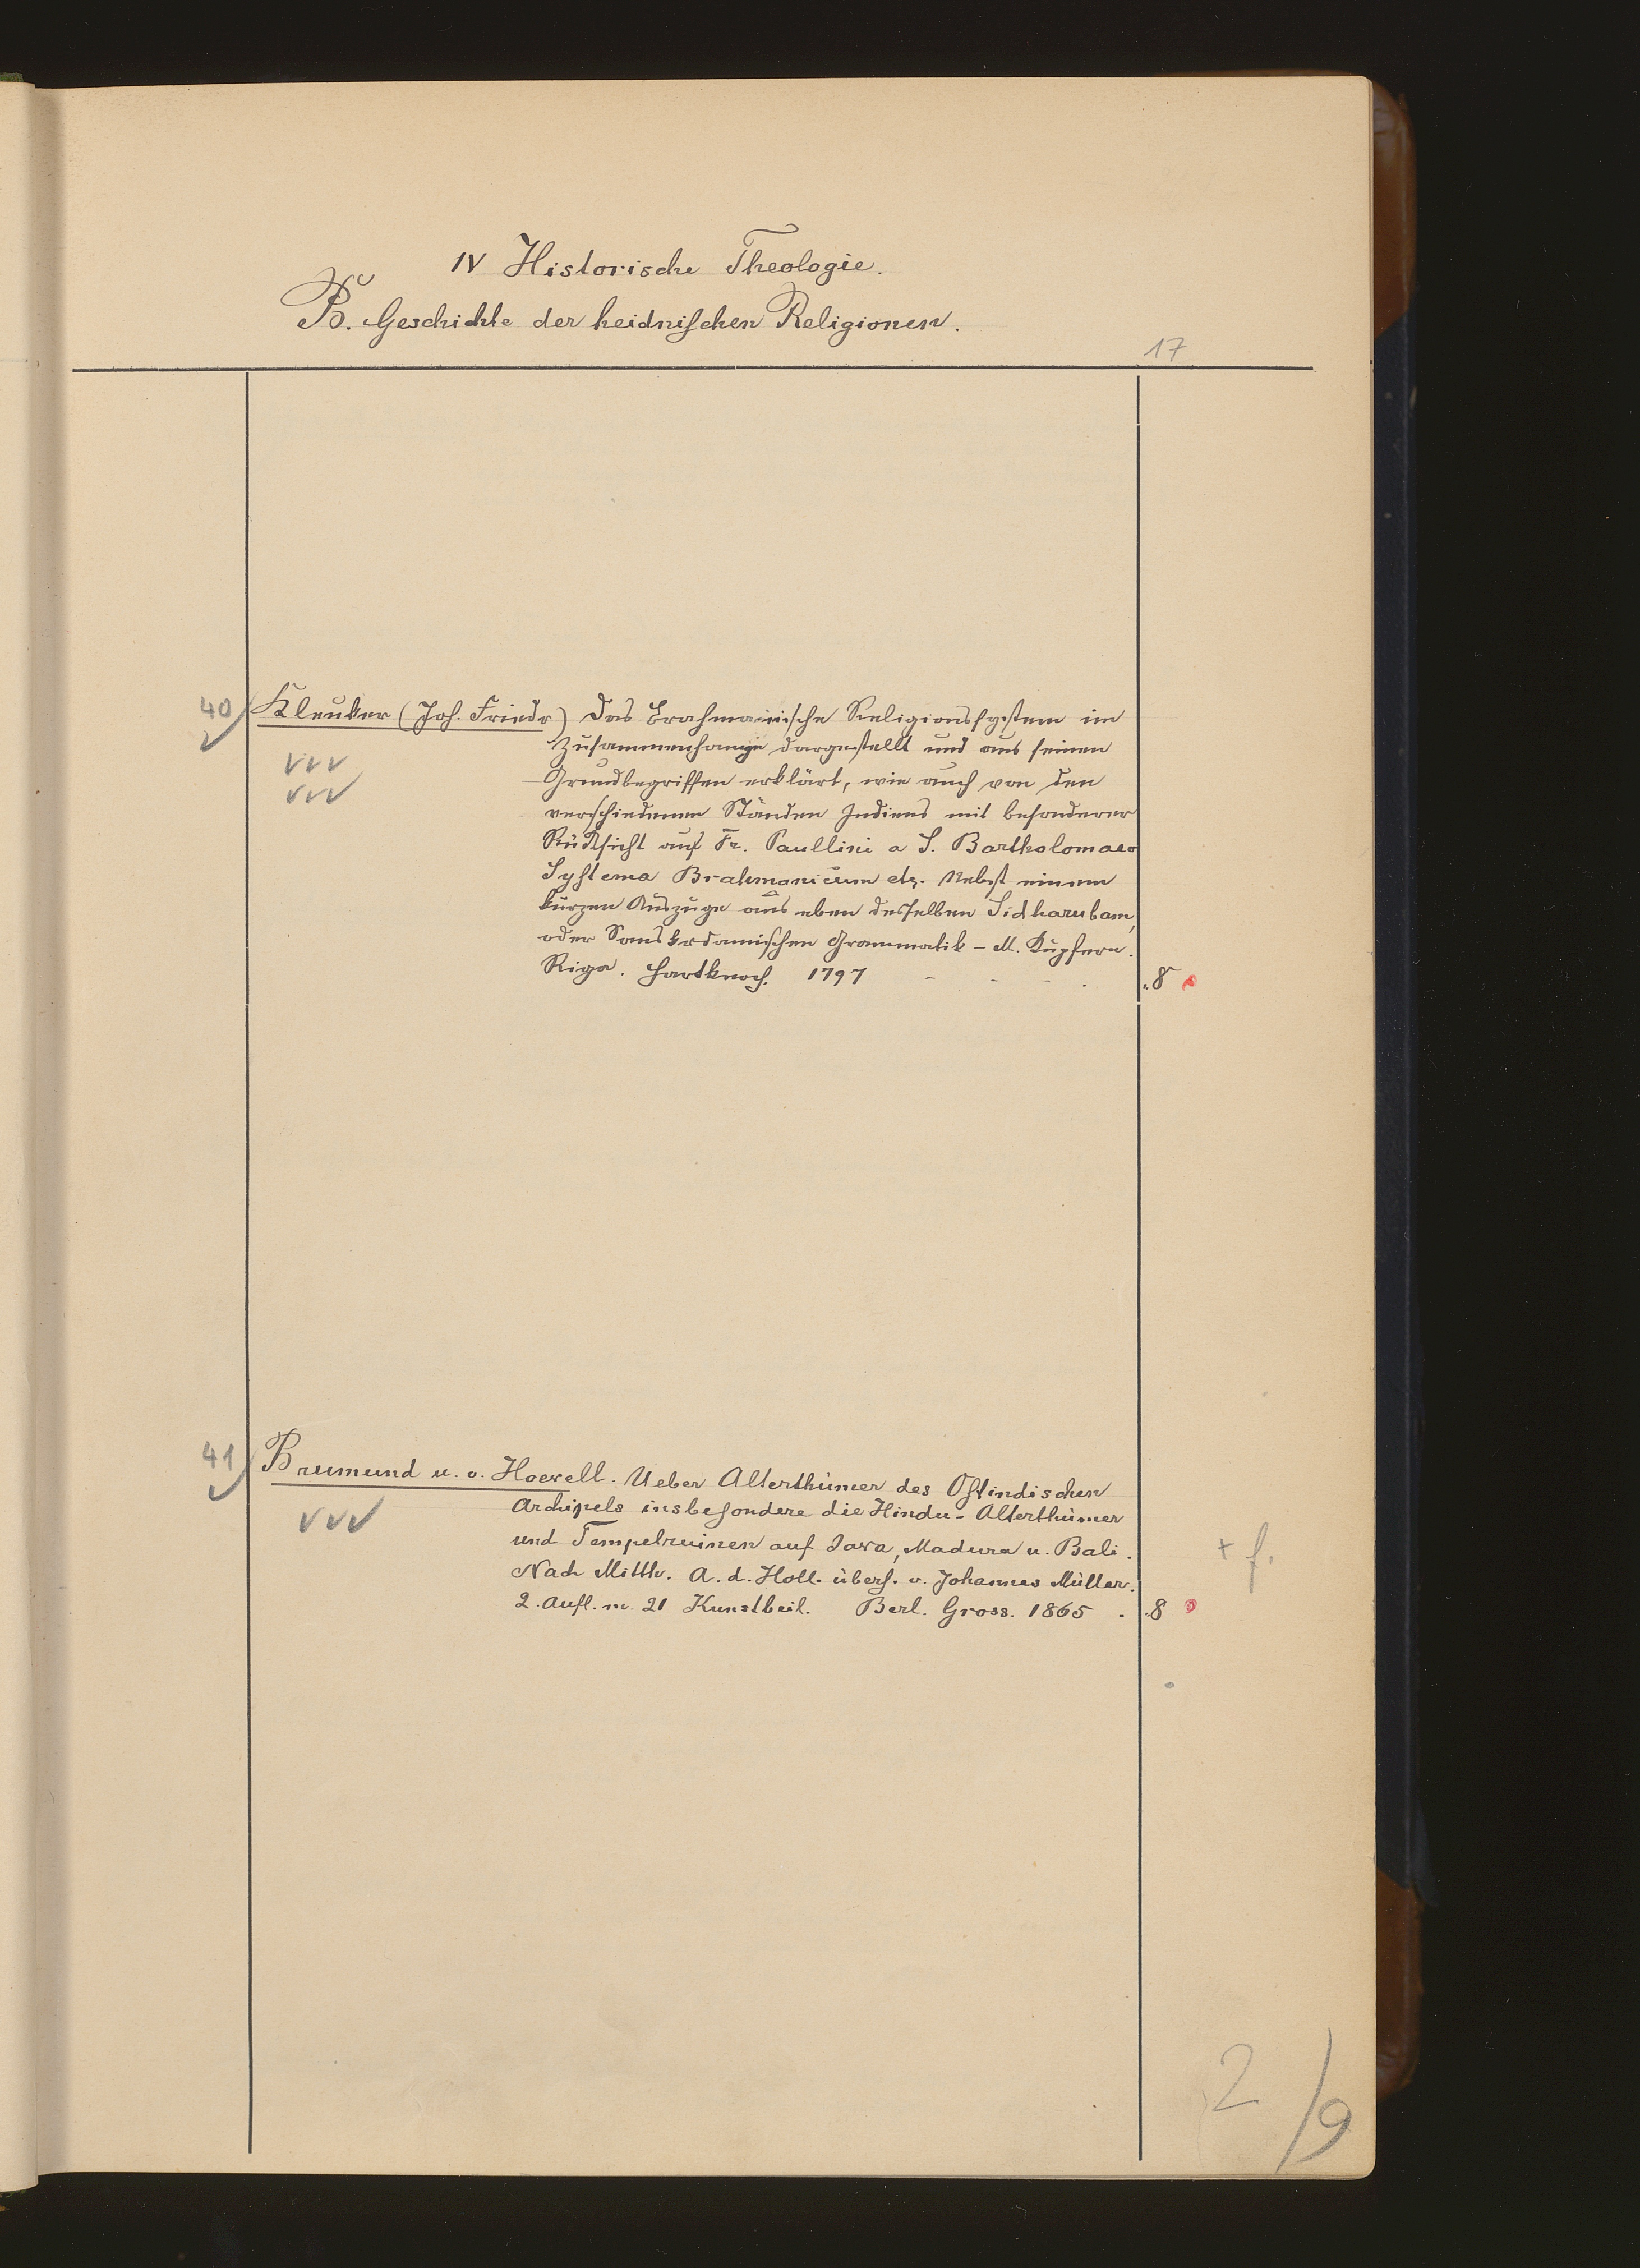 IV Historische Theologie.
B. Geschichte der heidnischen Religionen.
17
40 Kleuker (Joh. Friedr) Das Brahmanische Religionssystem im
Zusammenhange dargestellt und aus seinen
Grundbegriffen erklärt, wie auch von den
verschiedenen Ständen Indiens mit besonderer
Rücksicht auf Fr. Paullini a S. Bartholomaeo
Systema Brahmanicum etz. Nebst einem
kurzen Auszuge aus eben desselben Sidharubam,
oder Sanskrdamischen Grammatik – M. Kupfern.
Riga. Hartknoch. 1797 - - - . 8
41 Brumund u. v. Hoevell. Ueber Alterthümer des Ostindischen
Archipels insbesondere die Hindu-Alterthümer
und Tempelruinen auf Java, Madura u. Bali.
+ f.
Nach Mitth. A. d. Holl. übers. v. Johannes Müller.
2. Aufl. m. 21 Kunstbeil. Berl. Gross. 1865 . 8
2 /9